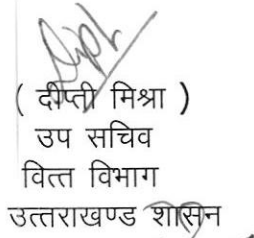 ( दीप्ती मिश्रा )
उप सचिव
वित्त विभाग
उत्तराखण्ड शासन